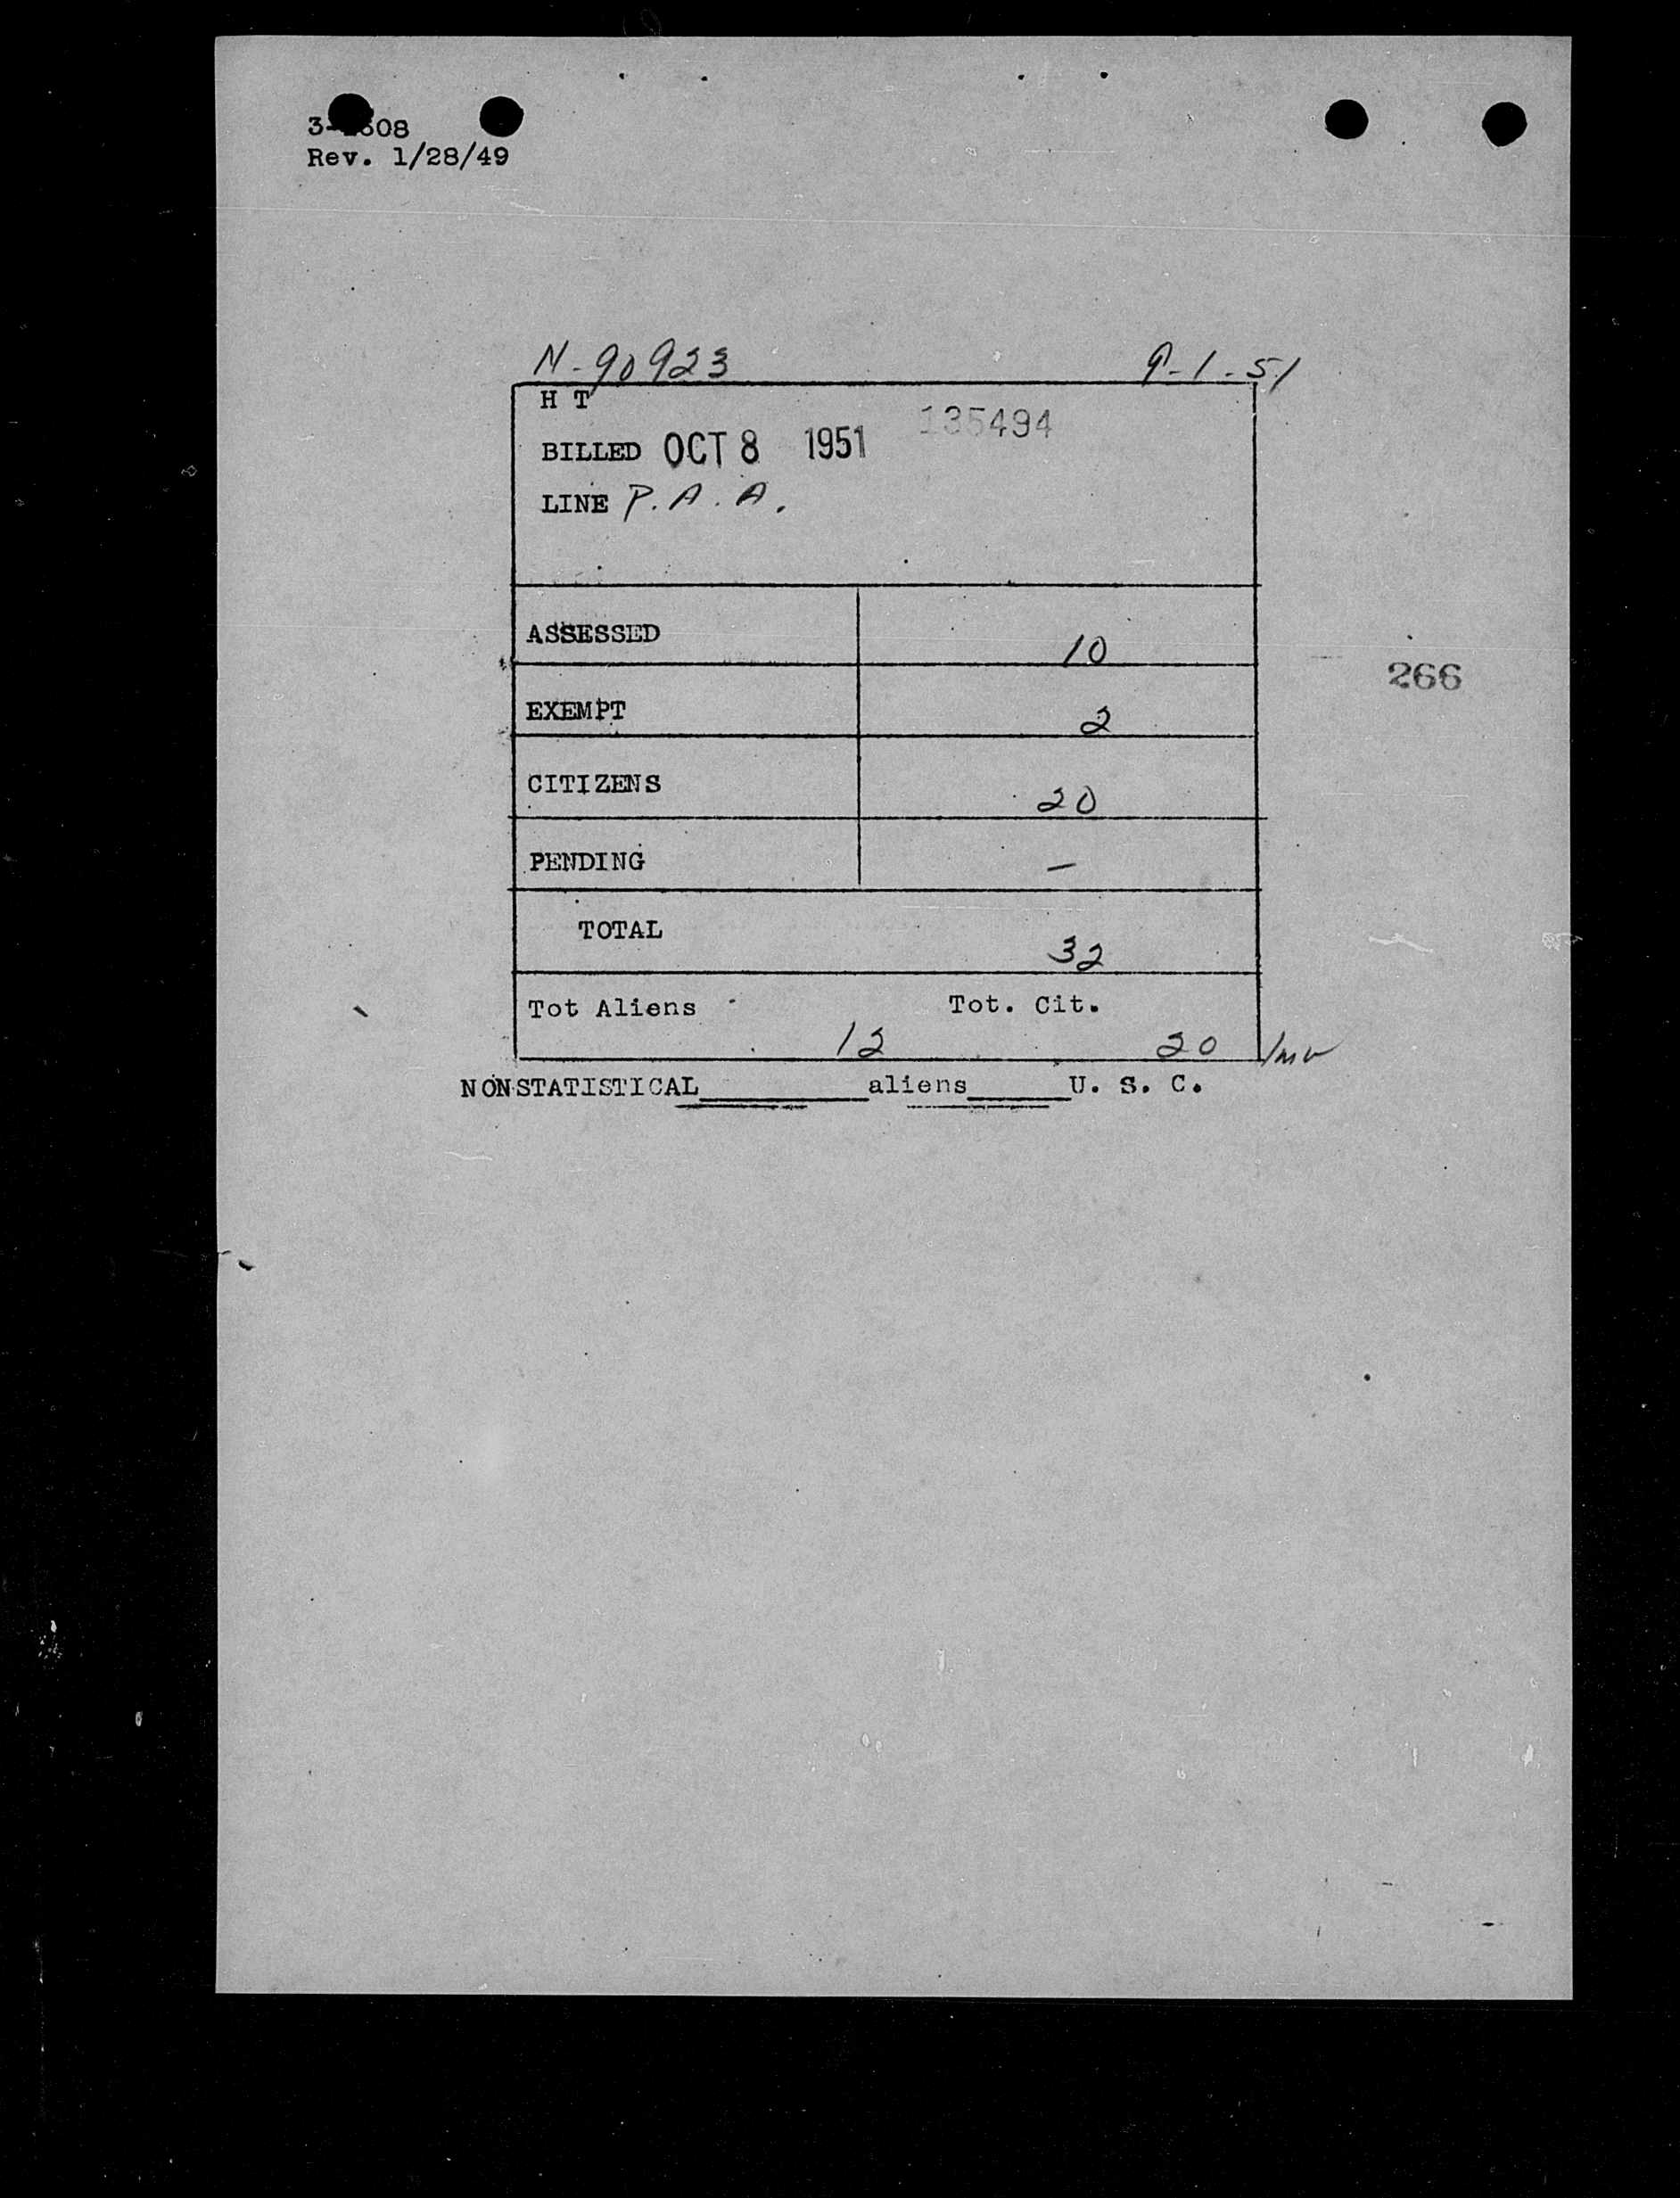 Rev. 1/28/49
N-90923 9-1-51
H T
135494
BILLED OCT 8 1951
LINE P.A.A.
ASSESSED 10
266
EXEMPT 2
CITIZENS 20
PENDING —
TOTAL 32
Tot Aliens Tot. Cit.
12 20
NONSTATISTICAL__________aliens______U. S. C.